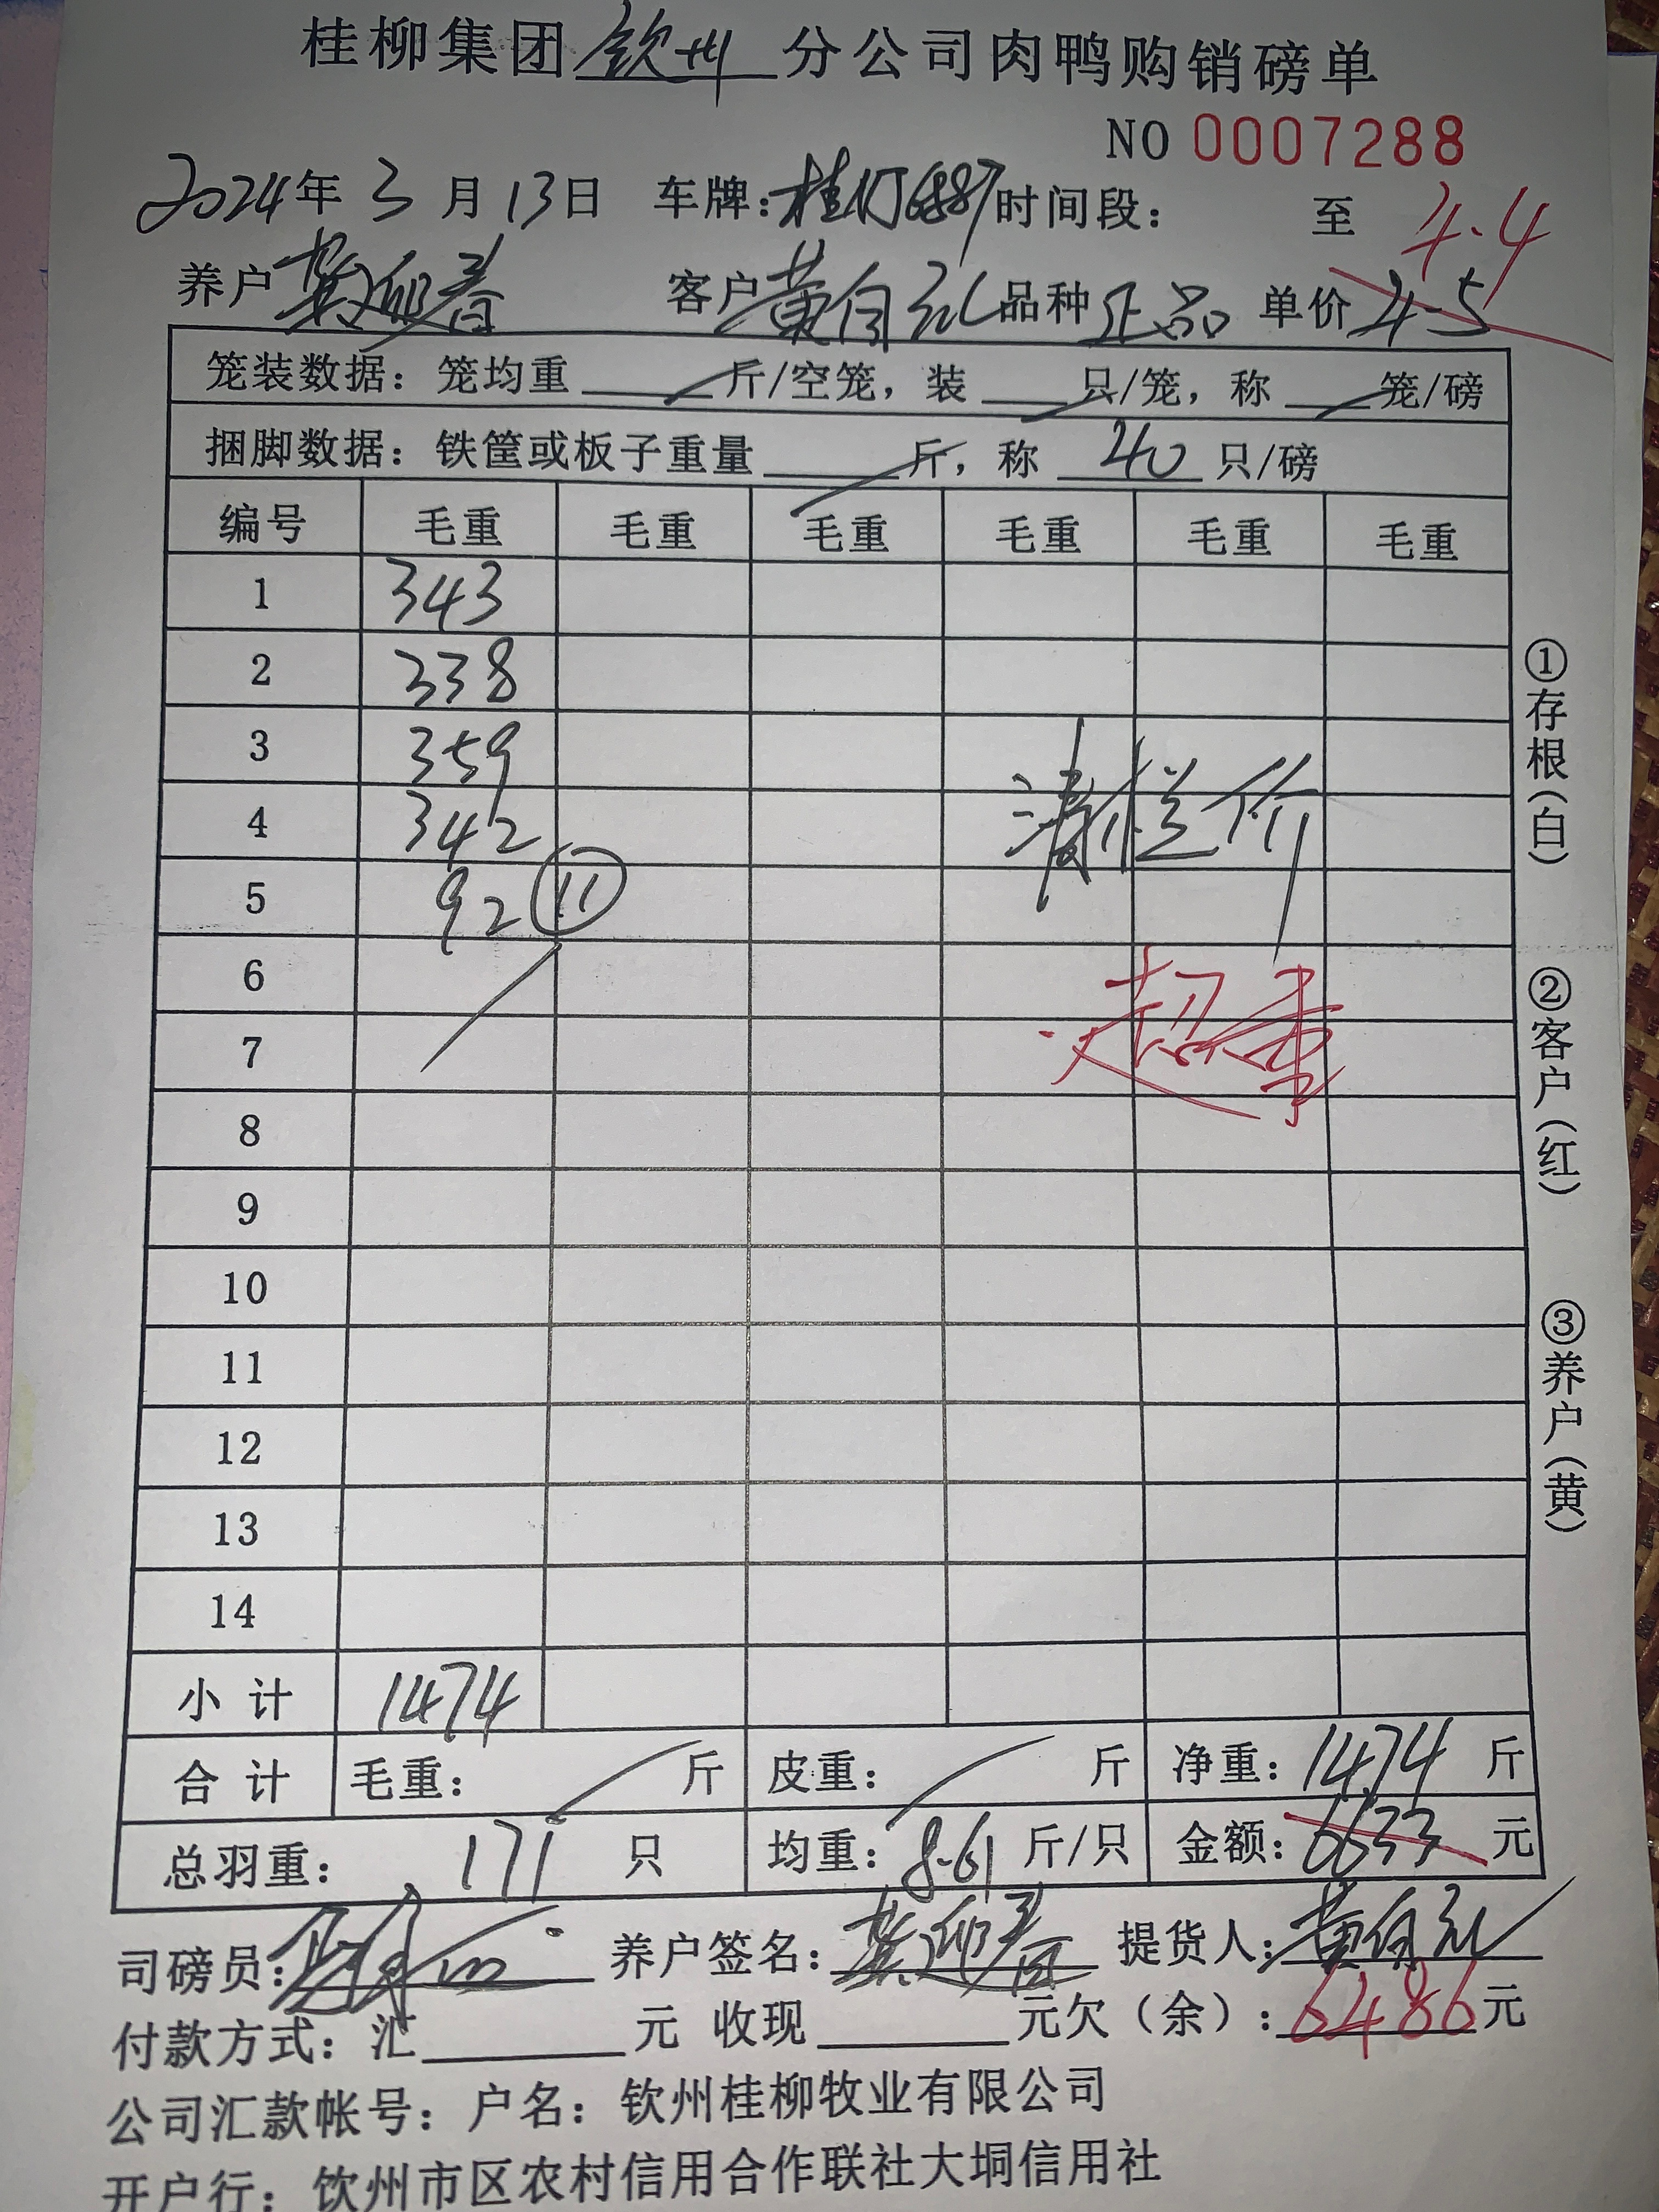 桂柳集团 钦州 分公司肉鸭购销磅单
NO 0007288
2024年 3月 13日 车牌: 时间段: 至
4.4
养户 迎春 客户 黄自 品种 正品 单价 4.5
笼装数据: 笼均重 斤/空笼, 装 只/笼, 称 笼/磅
捆脚数据: 铁筐或板子重量 斤, 称 40 只/磅
编号 毛重 毛重 毛重 毛重 毛重 毛重
1 343
2 338
3 359
4 342 清栏价
5 92 ⑪
6
7 超重
8
9
10
11
12
13
14
小计 1474
合计 毛重: 斤 皮重: 斤 净重: 1474 斤
总羽重: 171 只 均重: 8.61 斤/只 金额: 6633 元
司磅员: 养户签名: 迎春 提货人: 黄自
付款方式: 汇 元 收现 元欠(余): 6486元
公司汇款帐号: 户名: 钦州桂柳牧业有限公司
开户行: 钦州市区农村信用合作联社大垌信用社
①存根(白)
②客户(红)
③养户(黄)